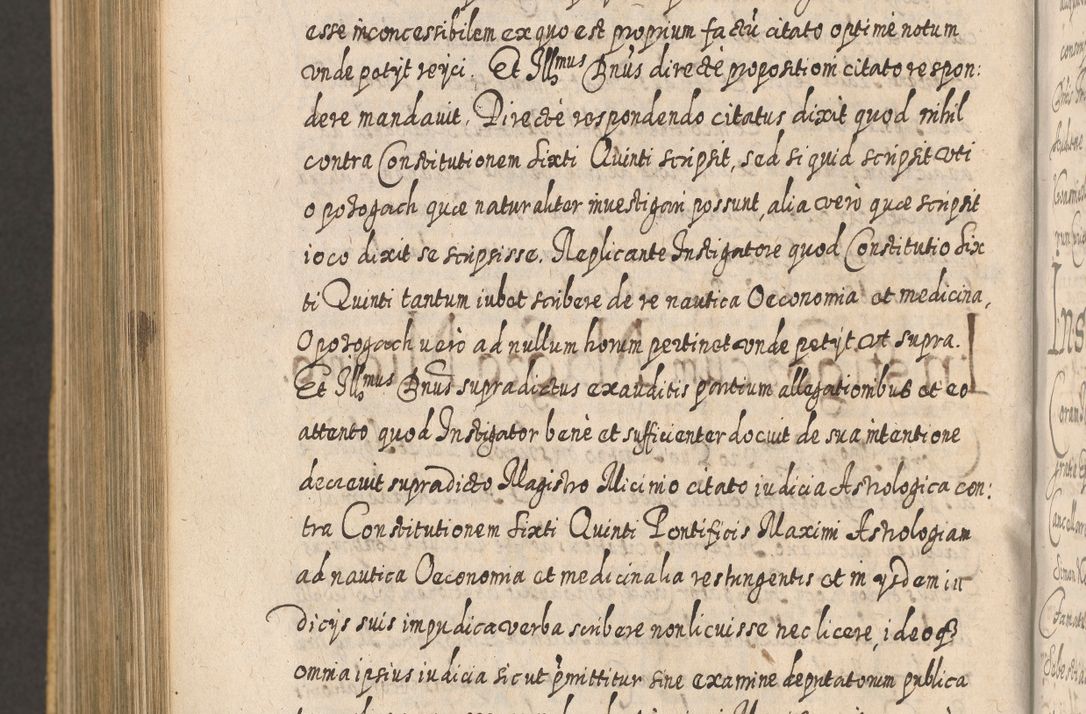 esse inconcessibilem ex quo est proprium factu citato optimè notum
vnde petyt reyci. Et Illmus Dnus directè propositioni citato respon:
dere mandauit. Directè respondendo citatus dixit quod nihil
contra Constitutionem Sixti Quinti scripsit, sed si quid scripsit vti
o pozogach quæ naturaliter inuestigari possunt, alia verò quæ scripsit
ioco dixit se scripsisse. Replicante Instigatore quod Constitutio Six
ti Quinti tantum iubet scribere de re nautica Oeconomia et medicina,
O pozogach uerò ad nullum horum pertinet vnde petyt vt supra.
Et Illmus Dnus supradictus exauditis partium allegationibus et eo
attento quod Instigator benè et sufficienter docuit de sua intentione
decreuit supradicto Magistro Micinio citato iudicia Astrologica con:
tra Constitutionem Sixti Quinti Pontificis Maximi Astrologiam
ad nautica Oeconomia et medicinalia restringentis et in ysdem iu
dicijs suis impudica verba scribere non licuisse nec licere, ideoq3
omnia ipsius iudicia sicut pmittitur sine examine deputatorum publica